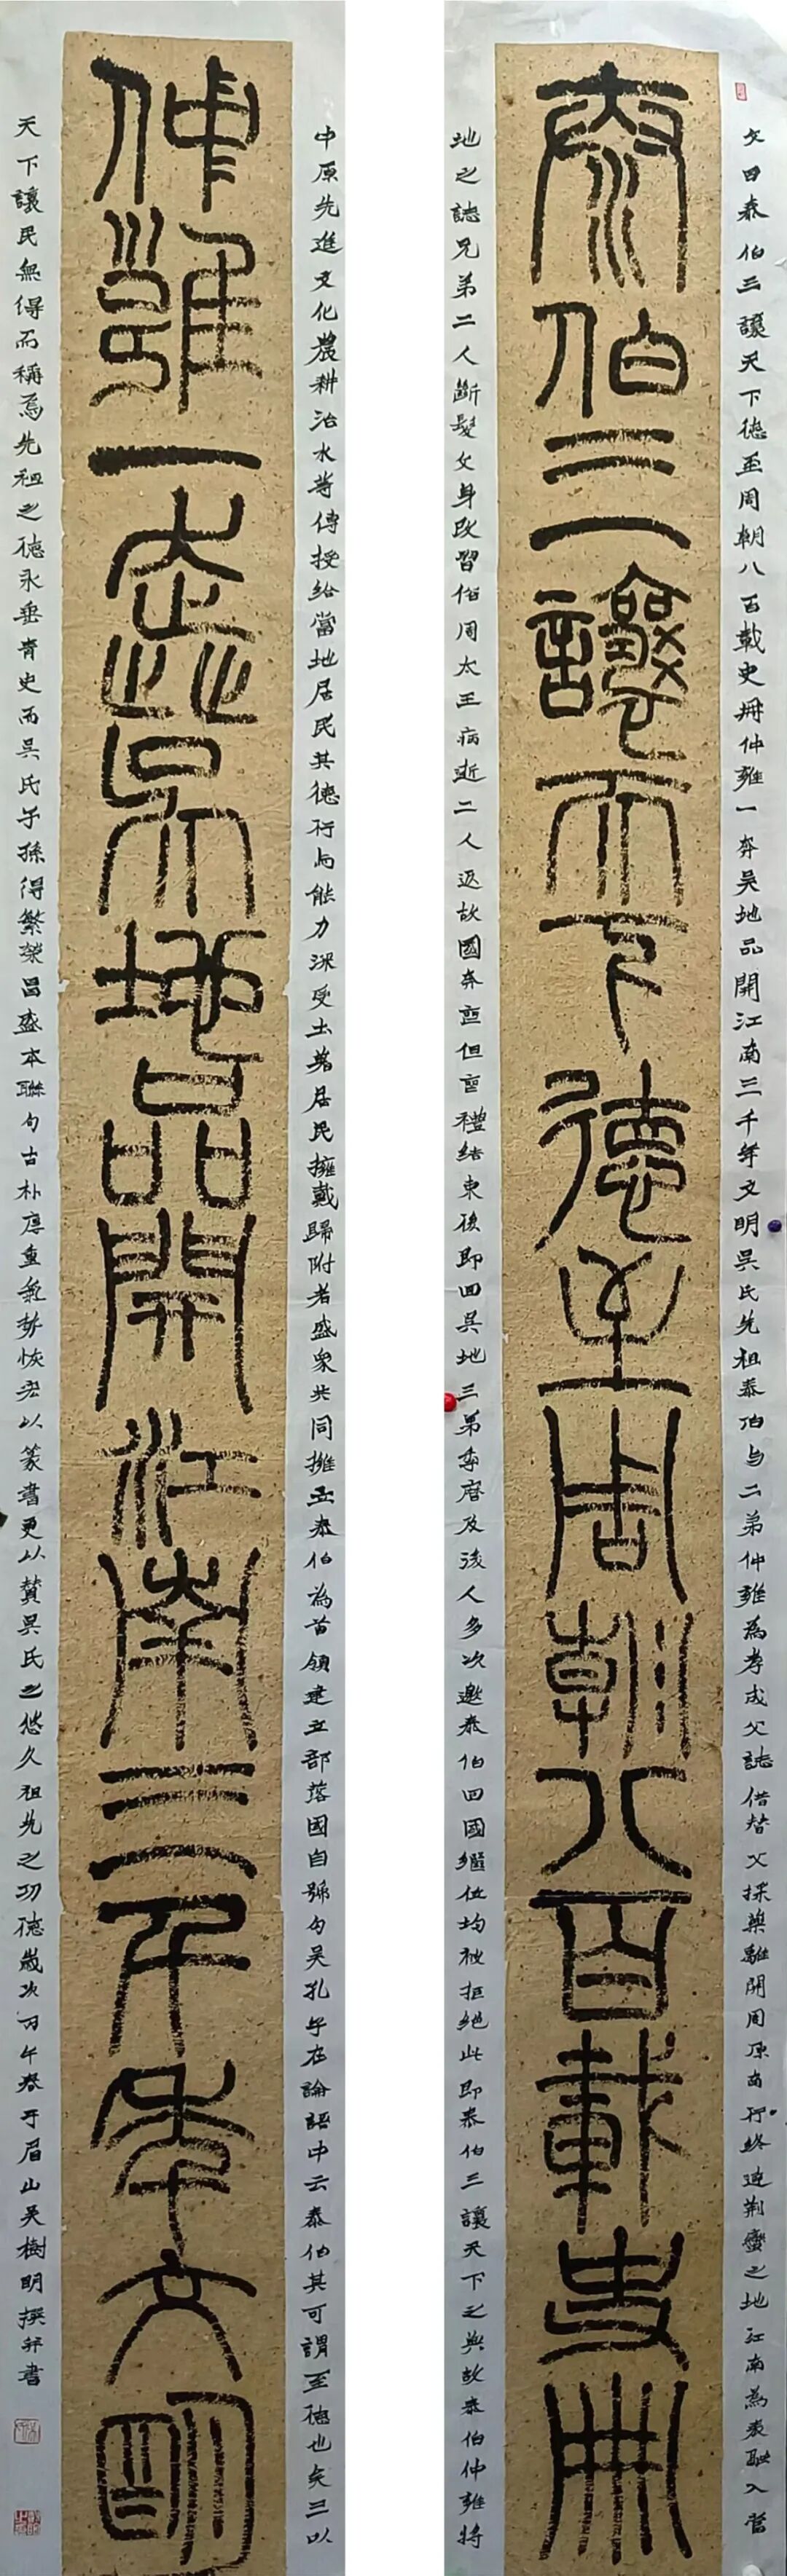 文曰泰伯三讓天下德至周朝八百載史冊仲雍一奔吳地品開江南三千年文明吳氏先祖泰伯与二弟仲雍為孝成父誌借替父採藥離開周原南行終達荆蠻之地江南為表融入當
泰伯三讓天下德至周朝八百載史冊
地之誌兄弟二人斷髮文身改習俗周太王病逝二人返故國奔喪但喪禮結束後即回吳地三弟季歷及後人多次邀泰伯回國繼位均被拒絕此即泰伯三讓天下之典故泰伯仲雍將
中原先進文化農耕治水等傳授給當地居民其德行与能力深受土著居民擁戴歸附者盛衆共同擁立泰伯為首領建立部落國自號勾吳孔子在論語中云泰伯其可謂至德也矣三以
仲雍一奔吳地品開江南三千年文明
天下讓民無得而稱焉先祖之德永垂青史而吳氏子孫得繁榮昌盛本聯句古朴厚重氣势恢宏以篆書更以贊吳氏之悠久祖先之功德歲次丙午春于眉山吳樹明撰并書